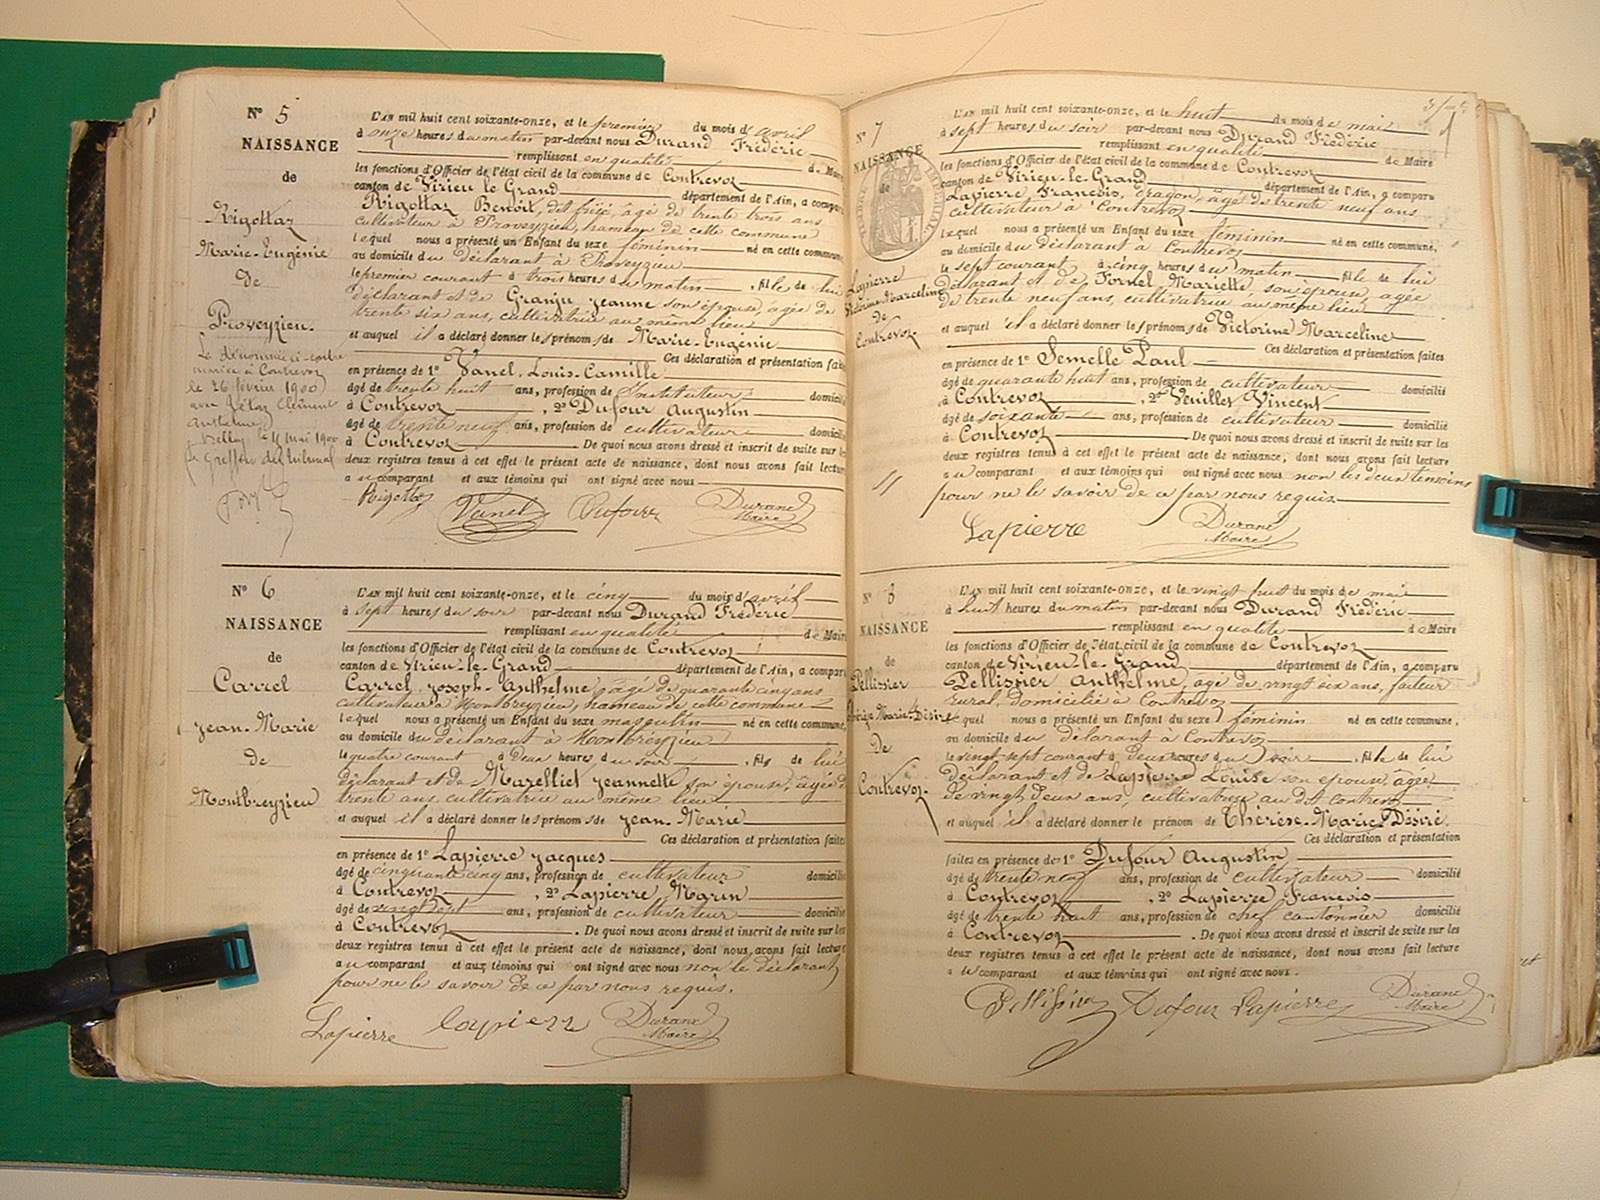 N° 5
NAISSANCE
de
Rigottaz
Marie-Eugénie
de
Proveyzieu.
Le dénommé ci-contre
marié à Contrevoz
le 26 février 1900
avec
Anthelme
Belley le 4 mai 1900
Le Greffier du tribunal
L'AN mil huit cent soixante-onze, et le premier du mois d'avril
à onze heures du matin par-devant nous Durand Frédéric
remplissant en qualité de Maire
les fonctions d'Officier de l'état civil de la commune de Contrevoz
canton de Virieu le Grand département de l'Ain, a comparu
Rigottaz Benoit, dit frisé, âgé de trente trois ans
cultivateur à Proveyzieu, hameau de cette commune
lequel nous a présenté un Enfant du sexe féminin né en cette commune
au domicile du déclarant à Proveyzieu
le premier courant à trois heures du matin, fille de lui
déclarant et de Granju Jeanne son épouse, âgée de
trente six ans, cultivatrice au même lieu
et auquel il a déclaré donner les prénoms de Marie-Eugénie
Ces déclaration et présentation faites
en présence de 1° Vanel, Louis-Camille
âgé de trente huit ans, profession de Instituteur domicilié
à Contrevoz, 2° Dufour Augustin
âgé de trente neuf ans, profession de cultivateur domicilié
à Contrevoz De quoi nous avons dressé et inscrit de suite sur les
deux registres tenus à cet effet le présent acte de naissance, dont nous avons fait lecture
au comparant et aux témoins qui ont signé avec nous
Rigottaz Vanel Dufour Durand
Maire
N° 6
NAISSANCE
de
Carrel
Jean-Marie
de
Montbreyzieu
L'AN mil huit cent soixante-onze, et le cinq du mois d'avril
à sept heures du soir par-devant nous Durand Frédéric
remplissant en qualité de Maire
les fonctions d'Officier de l'état civil de la commune de Contrevoz
canton de Virieu-le-Grand département de l'Ain, a comparu
Carrel Joseph-Anthelme, âgé de quarante cinq ans
cultivateur à Montbreyzieu, hameau de cette commune
lequel nous a présenté un Enfant du sexe masculin né en cette commune,
au domicile du déclarant à Montbreyzieu
le quatre courant à deux heures du soir, fils de lui
déclarant et de Mazelliet Jeannette son épouse, âgée de
trente ans, cultivatrice au même lieu
et auquel il a déclaré donner les prénoms de Jean-Marie
Ces déclaration et présentation faites
en présence de 1° Lapierre Jacques
âgé de cinquante cinq ans, profession de cultivateur domicilié
à Contrevoz, 2° Lapierre Marin
âgé de vingt sept ans, profession de cultivateur domicilié
à Contrevoz. De quoi nous avons dressé et inscrit de suite sur les
deux registres tenus à cet effet le présent acte de naissance, dont nous avons fait lecture
au comparant et aux témoins qui ont signé avec nous non le déclarant
pour ne le savoir de ce par nous requis.
Lapierre Lapierre Durand
Maire
N° 7
NAISSANCE
de
Lapierre
Victorine-Marceline
de
Contrevoz
L'AN mil huit cent soixante-onze, et le huit du mois de mai
à sept heures du soir par-devant nous Durand Frédéric
remplissant en qualité de Maire
les fonctions d'Officier de l'état civil de la commune de Contrevoz
canton de Virieu-le-Grand département de l'Ain, a comparu
Lapierre François, dragon, âgé de trente neuf ans
cultivateur à Contrevoz
lequel nous a présenté un Enfant du sexe féminin né en cette commune,
au domicile du déclarant à Contrevoz
le sept courant à cinq heures du matin fille de lui
déclarant et de Fornel Mariette son épouse, âgée
de trente neuf ans, cultivatrice au même lieu
et auquel il a déclaré donner les prénoms de Victorine Marceline
Ces déclaration et présentation faites
en présence de 1° Semelle Paul
âgé de quarante huit ans, profession de cultivateur domicilié
à Contrevoz, 2° Veuillet Vincent
âgé de soixante ans, profession de cultivateur domicilié
à Contrevoz. De quoi nous avons dressé et inscrit de suite sur les
deux registres tenus à cet effet le présent acte de naissance, dont nous avons fait lecture
au comparant et aux témoins qui ont signé avec nous non les deux temoins
pour ne le savoir de ce par nous requis
Lapierre Durand
Maire
N° 8
NAISSANCE
de
Pellissier
Thérèse-Marie-Désiré
de
Contrevoz.
L'AN mil huit cent soixante-onze, et le vingt huit du mois de mai
à huit heures du matin par-devant nous Durand Frédéric
remplissant en qualité de Maire
les fonctions d'Officier de l'état civil de la commune de Contrevoz
canton de Virieu-le-Grand département de l'Ain, a comparu
Pellissier Anthelme, âgé de vingt six ans, facteur
rural, domicilié à Contrevoz
lequel nous a présenté un Enfant du sexe féminin né en cette commune,
au domicile du déclarant à Contrevoz
le vingt-sept courant à deux heures du soir, fille de lui
déclarant et de Lapierre Louise son épouse, âgée
de vingt deux ans, cultivatrice au dit Contrevoz
et auquel il a déclaré donner le prénom de Thérèse-Marie-Désiré.
Ces déclaration et présentation
faites en présence de 1° Dufour Augustin
âgé de trente neuf ans, profession de cultivateur domicilié
à Contrevoz, 2° Lapierre François
âgé de trente huit ans, profession de chef cantonnier domicilié
à Contrevoz. De quoi nous avons dressé et inscrit de suite sur les
deux registres tenus à cet effet le présent acte de naissance, dont nous avons fait lecture
au comparant et aux témoins qui ont signé avec nous.
Pellissier Dufour Lapierre Durand
Maire